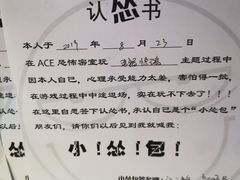 认怂书
本人于 2019 年 8 月 23 日
在 ACE 恐怖密室玩 主题过程中
因本人自己,心理承受能力太差,害怕得一批,
在游戏过程中中途退场,实在玩不下去了!!!
在这里自己签下认怂书,承认自己是个"小怂包"
朋友们,请你们以后见到我就喊我:
小!怂!包!